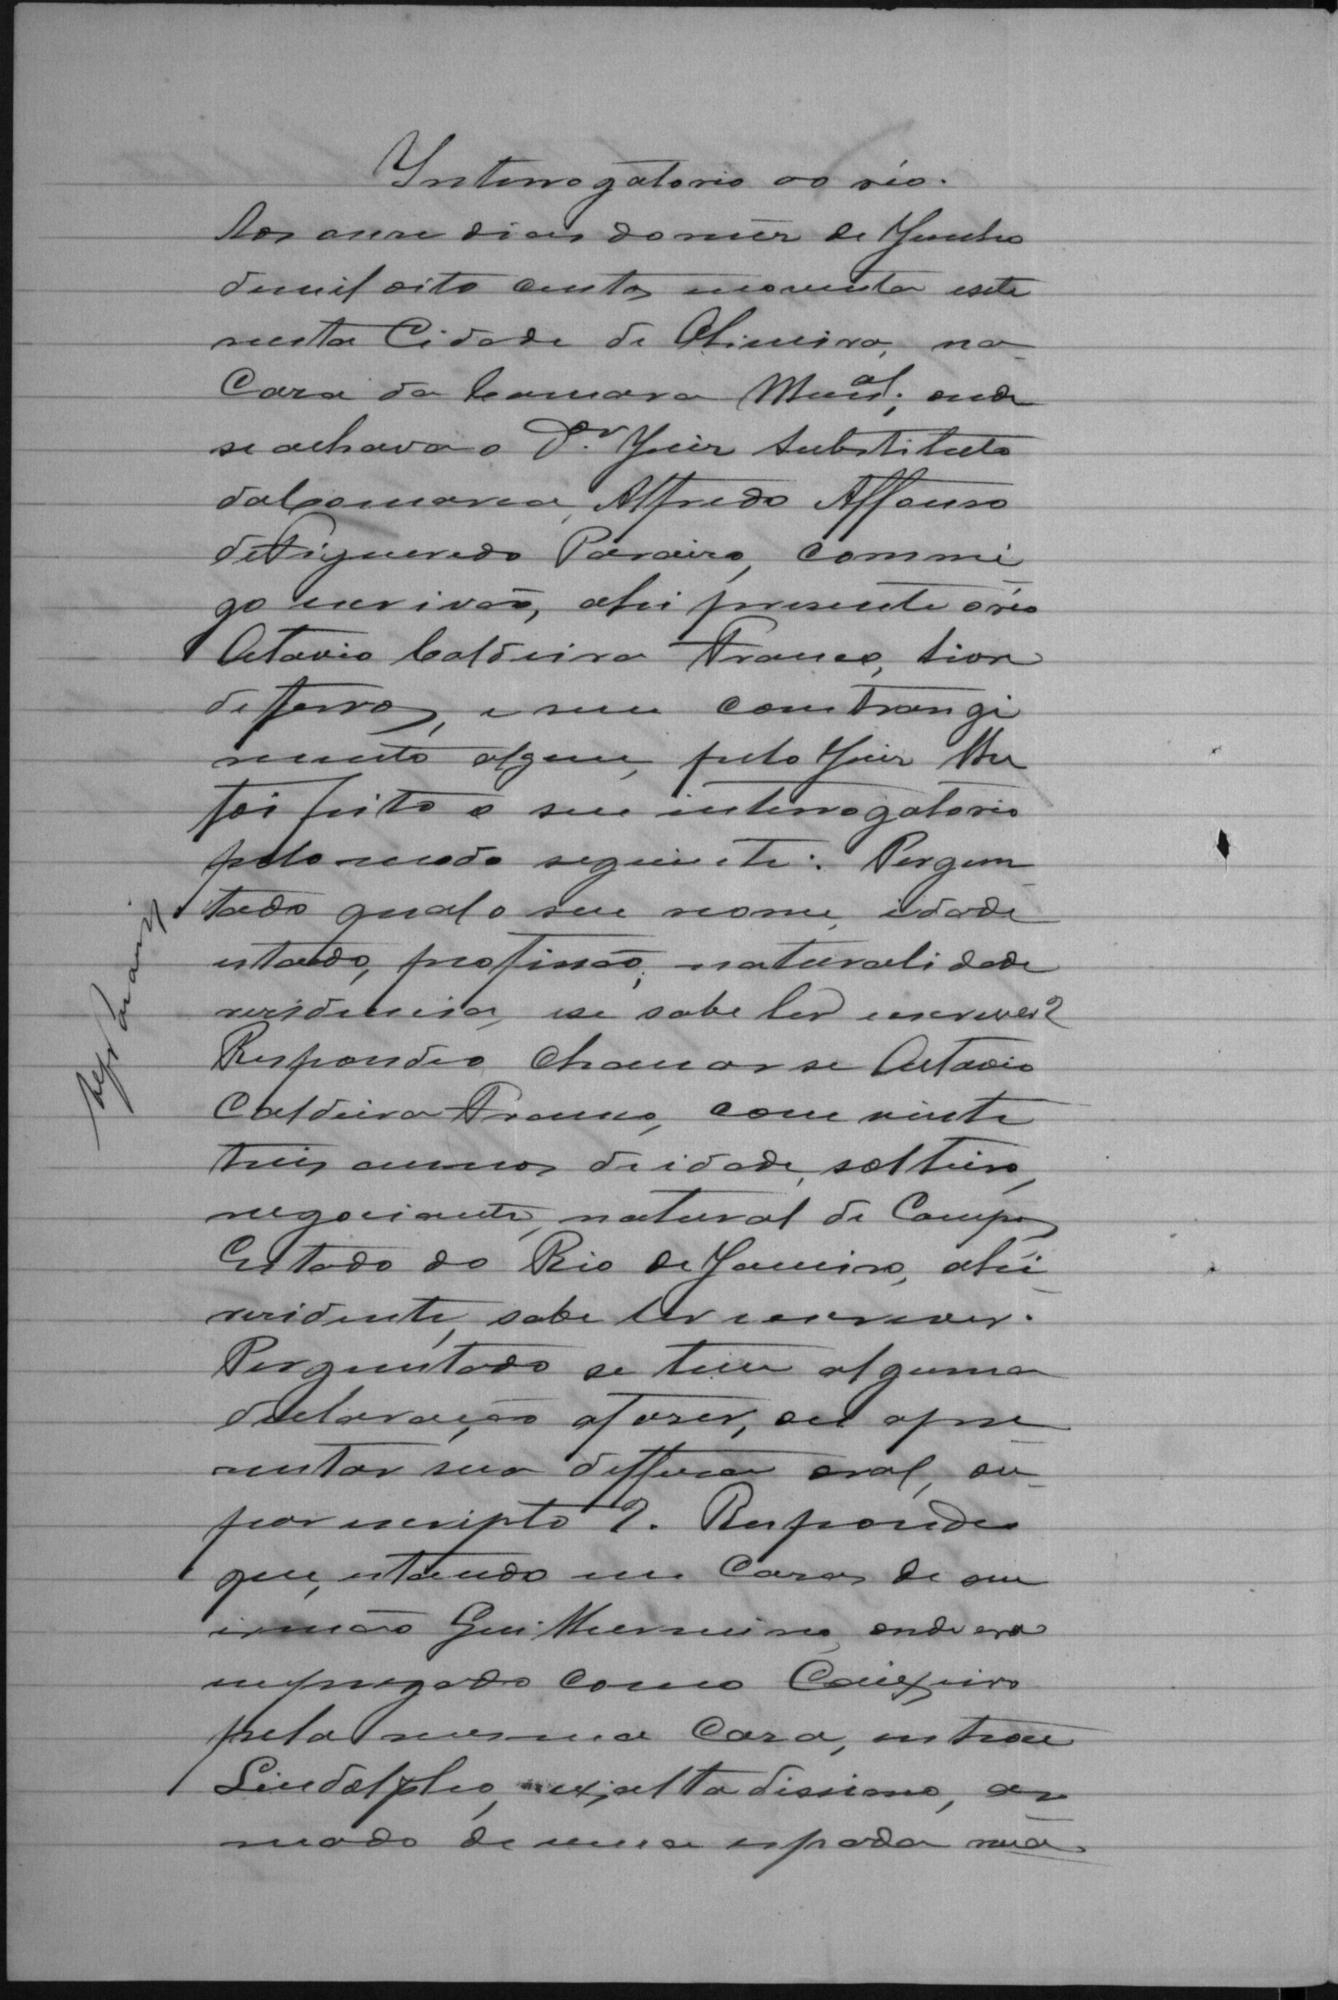 Interrogatorio ao réo.
Aos onze dias do mez de Junho
de mil oito centos noventa e sete
nesta Cidade de Olineira, na
Casa da Camara Mun.al, onde
se achava o D.r Juiz Substituto
da Comarca, Alfredo Affonso
de Figueredo Paraiso, commi
go escrivão, ahi presente o réo
Octavio Caldeira Franco, livre
de ferros, e sem constrangi
mento algum, pelo Juiz lhe
foi feito o seu interrogatorio
pelo modo seguinte: Pergun
tado qual o seu nome, idade
estado, profissão, naturalidade
residencia, e se sabe ler escrever?
Respondeo chamar se Octavio
Caldeira Franco, com vinte
tres annos de idade, solteiro,
negociante, natural de Campos
Estado do Rio de Janeiro, ahi
residente, sabe ler e escrever.
Perguntado se tem alguma
declaração a fazer, ou apre
sentar sua deffesa oral, ou
por escripto? Respondeo
que, estando em Casa de seu
irmão Guilhermino, onde era
empregado como Caixeiro
pela mesma Casa, entrou
Lindolpho, exaltadissimo, ar
mado de uma espada nua